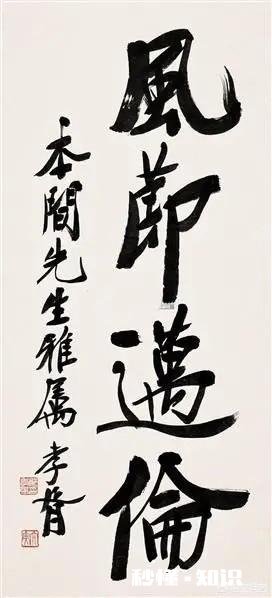 風節邁倫
本間先生雅屬 孝胥
秒懂·知识